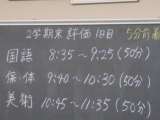 2学期末評価1日目 5分前着
国語 8:35〜9:25(50分)
保体 9:40〜10:30(50分)
美術 10:45〜11:35(50分)